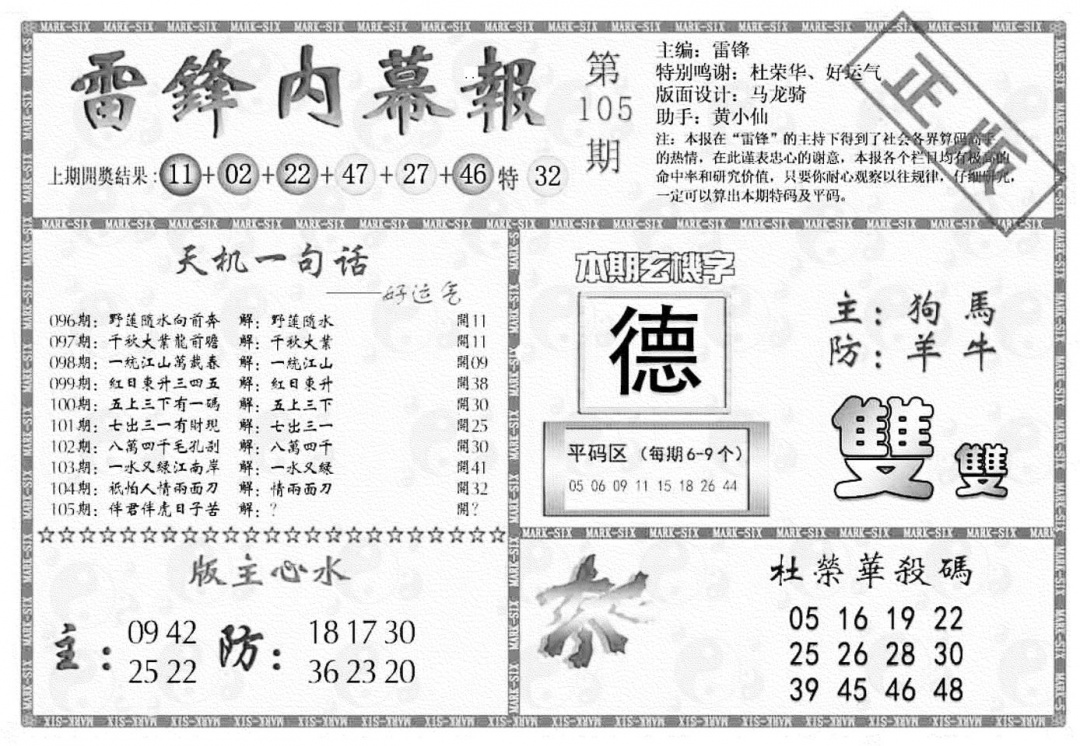 雷鋒内幕報
第
105
期
主编：雷锋
特别鸣谢：杜荣华、好运气
版面设计：马龙骑
助手：黄小仙
注：本报在“雷锋”的主持下得到了社会各界算码高手
的热情，在此谨表忠心的谢意，本报各个栏目均有极高的
命中率和研究价值，只要你耐心观察以往规律，仔细研究，
一定可以算出本期特码及平码。
正版
上期開獎结果：11+02+22+47+27+46特32
天机一句话
——好运气
096期：野莲隨水向前奔 解：野莲隨水 開11
097期：千秋大業龍前瞻 解：千秋大業 開11
098期：一統江山萬載春 解：一統江山 開09
099期：紅日東升三四五 解：紅日東升 開38
100期：五上三下有一碼 解：五上三下 開30
101期：七出三一有財現 解：七出三一 開25
102期：八萬四千毛孔剐 解：八萬四千 開30
103期：一水又綠江南岸 解：一水又綠 開41
104期：祇怕人情兩面刀 解：情兩面刀 開32
105期：伴君伴虎日子苦 解：？ 開？
☆☆☆☆☆☆☆☆☆☆☆☆☆☆☆☆☆☆☆☆☆☆☆
本期玄機字
德
主：狗 馬
防：羊 牛
平码区（每期6-9个）
05 06 09 11 15 18 26 44
雙雙
版主心水
主：
09 42
25 22
防：
18 17 30
36 23 20
杀
杜榮華殺碼
05 16 19 22
25 26 28 30
39 45 46 48
MARK-SIX